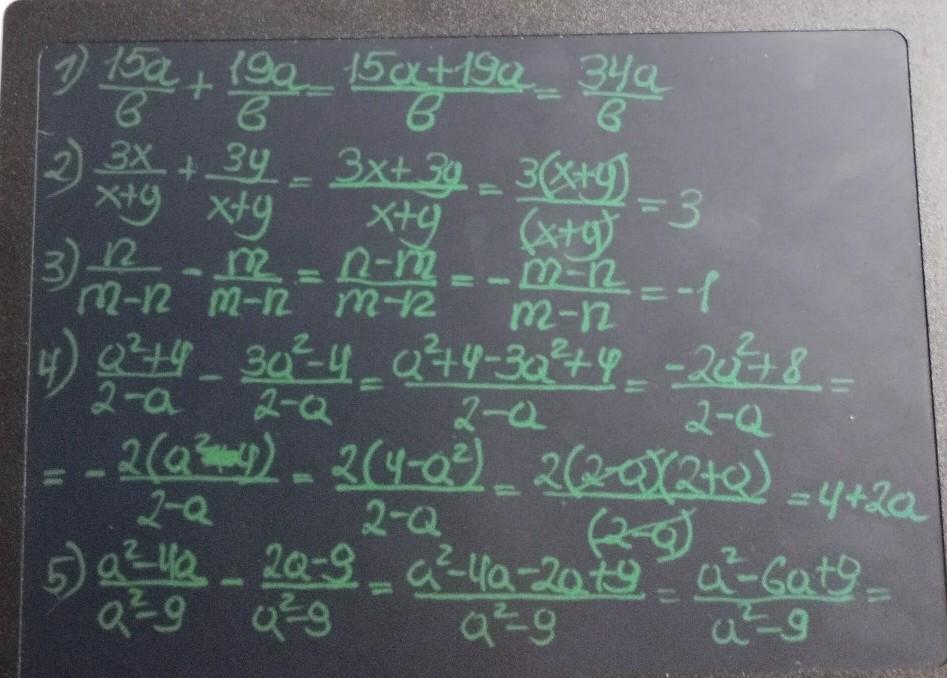 1) 15a/b + 19a/b = 15a+19a/b = 34a/b
2) 3x/x+y + 3y/x+y = 3x+3y/x+y = 3(x+y)/(x+y) = 3
3) n/m-n - m/m-n = n-m/m-n = - m-n/m-n = -1
4) a²+4/2-a - 3a²-4/2-a = a²+4-3a²+4/2-a = -2a²+8/2-a =
= - 2(a²-4)/2-a = 2(4-a²)/2-a = 2(2-a)(2+a)/(2-a) = 4+2a
5) a²-4a/a²-9 - 2a-9/a²-9 = a²-4a-2a+9/a²-9 = a²-6a+9/a²-9 =